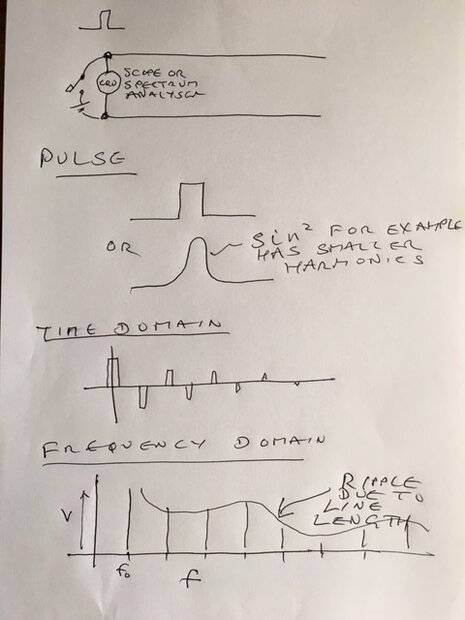 CRO
SCOPE OR
SPECTRUM
ANALYSER
PULSE
OR
Sin² FOR EXAMPLE
HAS SMALLER
HARMONICS
TIME DOMAIN
FREQUENCY DOMAIN
RIPPLE
DUE TO
LINE
LENGTH
V
f₀
f